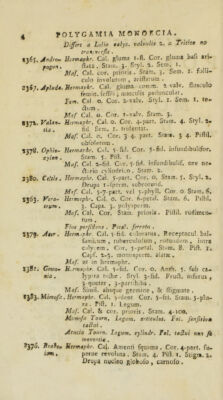 4 POLYGAMIA MONOECIA.
Differt a Lolio calyc. valvulis 2. a Tritico no
transverse.
Hermaphr. Cal. gluma 1-fl. Cor. gluma basi ari-
stata. Stam. 3. Styl. 2. Sem. 1.
Mas. Cal. cor. prioris. Stam. 3. Sem. 1. folli-
culo involutum, aristatum.
Hermaphr. Cal. gluma comm. 2 valv. flosculo
femin. sessili, masculis pedunculat.
Fem. Cal. 0. Cor. 2-valv. Styl. 1. Sem. 1. te-
ctum.
Mas. Cal. 0. Cor. 2-valv. Stam. 3.
Hermaphr. Cal. 0. Cor. 4-part. Stam. 4. Styl. 2-
fid. Sem. 1. solitar.
Mas. Cal. 0. Cor. 3 4 part. Stam. 3 4. Pistil.
obsoletum.
Cal. 5-fid. Cor. 5-fid. infundibulifor.
Stam. 5. Pist. 1.
Mas. Cal. 2-fid. Cor. 5-fid. infundibulif. ore ne-
ctario cylindrico. Stam. 2.
2380. Celtis. Hermaphr. Cal. 5-part. Cor. 0. Stam. 5. Styl. 2.
Drupa 1-sperm. subrotund.
Mas. Cal. 5-partit. vel 5-phyll. Cor. 0. Stam. 6.
Hermaphr. Cal. 0. Cor. 6-petal. Stam. 6. Pistil.
3. Caps. 3. polysperm.
Mas. Cal. Cor. Stam. prioris. Pistil. rudimen-
tum.
Flos persistens. Petal. ferentes.
2379. Acer. Hermaphr. Cal. 5 fid. coloratus. Receptacul bal-
samicum, tuberculosum, rotundum, intra
calycem. Cor. 5-petal. Stam. 8. Pist. 1.
Caps. 2-3. monosperm. alata.
Mas. ut in hermaphr.
Hermaphr. Cal. 5-fid. Cor. 0. Anth. 5. sub ca-
lyptra recta. Styl. 3-fid. Fruct. inferus,
3 queter, 3-partibilis.
Mas. Simil. absque germine, & stigmate.
2383. Mimosa. Hermaphr. Cal. 5-dent Cor. 5-fid. Stam. 5-plu-
ra. Pist. 1. Legum.
Mas. Cal. & cor. prioris. Stam. 4-100.
Mimosa Tourn. Legum. articulos. Fol. sensibilis
tactus.
Acacia Tourn. Legum. cylindr. Fol. tactui non se
moventia.
2376. Hermaphr. Cal. Amenti squama. Cor. 4-part. su-
perne revoluta. Stam. 4. Pist. 1. Stigm. 2.
Drupa nucleo globoso, carnoso.